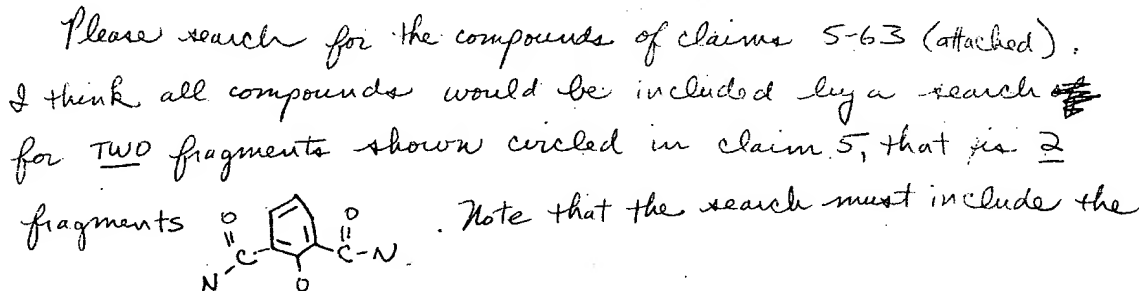 Please search for the compounds of claims 5-63 (attached).
I think all compounds would be included by a search
for TWO fragments shown circled in claim 5, that is 2
fragments . Note that the search must include the
O O
C C-N
N O